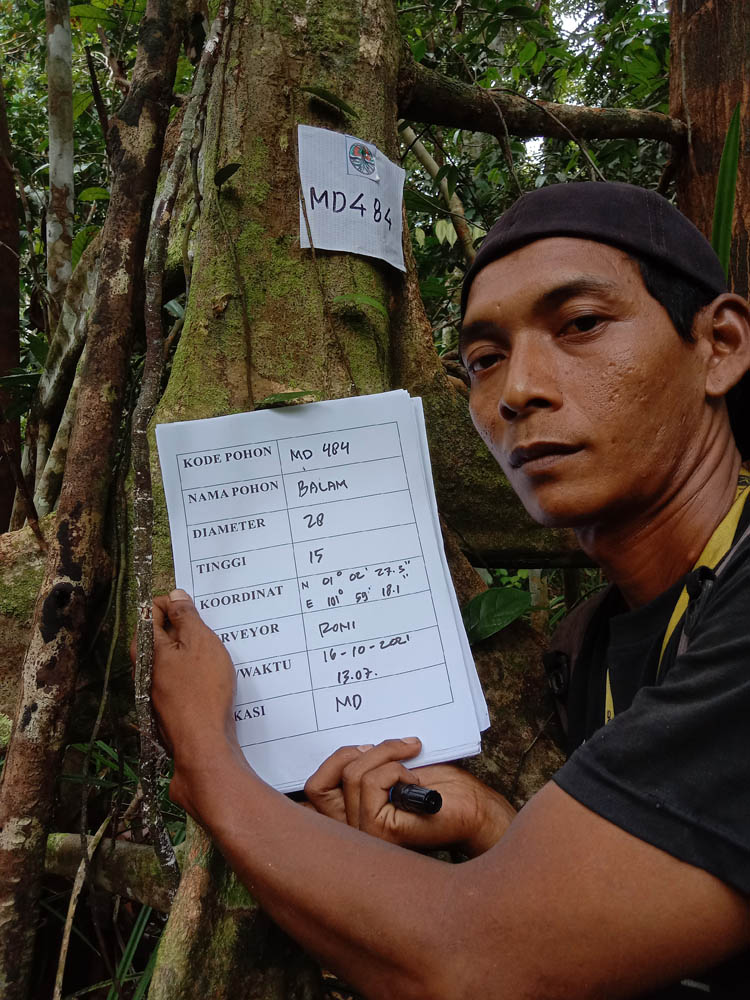 MD484
KODE POHON MD 484
NAMA POHON BALAM
DIAMETER 28
TINGGI 15
KOORDINAT N 01° 02' 27.3"
E 101° 59' 18.1"
RVEYOR RONI
/WAKTU 16-10-2021
13.07.
KASI MD